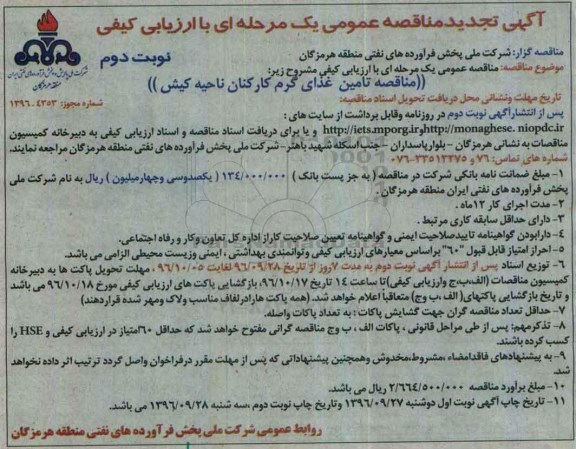 آگهی تجدیدمناقصه عمومی یک مرحله ای با ارزیابی کیفی
نوبت دوم
شرکت ملی پخش فرآورده های نفتی ایران
منطقه هرمزگان
مناقصه گزار: شرکت ملی پخش فرآورده های نفتی منطقه هرمزگان
موضوع مناقصه: مناقصه عمومی یک مرحله ای با ارزیابی کیفی مشروح زیر:
((مناقصه تامین غذای گرم کارکنان ناحیه کیش ))
شماره مجوز: ۱۳۹۶.۴۲۵۳
تاریخ مهلت ونشانی محل دریافت تحویل اسناد مناقصه:
پس از انتشارآگهی نوبت دوم در روزنامه وقابل برداشت از سایت های :
http://iets.mporg.irوhttp://monaghese. niopdc.ir و یا برای دریافت اسناد مناقصه و اسناد ارزیابی کیفی به دبیرخانه کمیسیون
مناقصات به نشانی هرمزگان – بلوارپاسداران – جنب اسکله شهید باهنر– شرکت ملی پخش فرآورده های نفتی منطقه هرمزگان مراجعه نمایند.
شماره های تماس: ۷۶ و ۳۳۵۱۲۲۷۵-۰۷۶
۱– مبلغ ضمانت نامه بانکی شرکت در مناقصه ( به جز پست بانک ) ۱۳۴/۰۰۰/۰۰۰ ( یکصدوسی وچهارمیلیون ) ریال به نام شرکت ملی
پخش فرآورده های نفتی ایران منطقه هرمزگان .
۲– مدت اجرای کار ۱۲ماه .
۳– دارای حداقل سابقه کاری مرتبط .
۴– دارابودن گواهینامه تاییدصلاحیت ایمنی و گواهینامه تعیین صلاحیت کاراز اداره کل تعاون وکار و رفاه اجتماعی.
۵–احراز امتیاز قابل قبول "۶۰" براساس معیارهای ارزیابی کیفی وتوانمندی بهداشتی ، ایمنی وزیست محیطی الزامی می باشد.
۶– توزیع اسناد پس از انتشار آگهی نوبت دوم به مدت ۷روز از تاریخ ۹۶/۰۹/۲۸ لغایت ۹۶/۱۰/۰۵ ، مهلت تحویل پاکت ها به دبیرخانه
کمیسیون مناقصات (الف،ب،ج وارزیابی کیفی)تا ساعت ۱۴ تاریخ ۹۶/۱۰/۱۷، بازگشایی پاکت های ارزیابی کیفی مورخ ۹۶/۱۰/۱۸ می باشد
و تاریخ بازگشایی پاکتهای( الف ، ب وج) متعاقباً اعلام خواهد شد. (همه پاکت هارادرلفاف مناسب ولاک ومهر شده قراردهند)
۷– حداقل تعداد مناقصه گران جهت گشایش پاکات : به تعداد پاکات واصله.
۸– تذکرمهم: پس از طی مراحل قانونی ، پاکات الف ، ب وج مناقصه گرانی مفتوح خواهد شد که حداقل ۶۰امتیاز در ارزیابی کیفی و HSE را
کسب کرده باشند.
۹– به پیشنهادهای فاقدامضاء ،مشروط،مخدوش وهمچنین پیشنهاداتی که پس از مهلت مقرر درفراخوان واصل گردد ترتیب اثر داده نخواهد
شد.
۱۰– مبلغ برآورد مناقصه ۲/۶۶۴/۵۰۰/۰۰۰ ریال می باشد.
۱۱– تاریخ چاپ آگهی نوبت اول دوشنبه ۱۳۹۶/۰۹/۲۷ وتاریخ چاپ نوبت دوم ،سه شنبه ۱۳۹۶/۰۹/۲۸ می باشد.
روابط عمومی شرکت ملی پخش فرآورده های نفتی منطقه هرمزگان